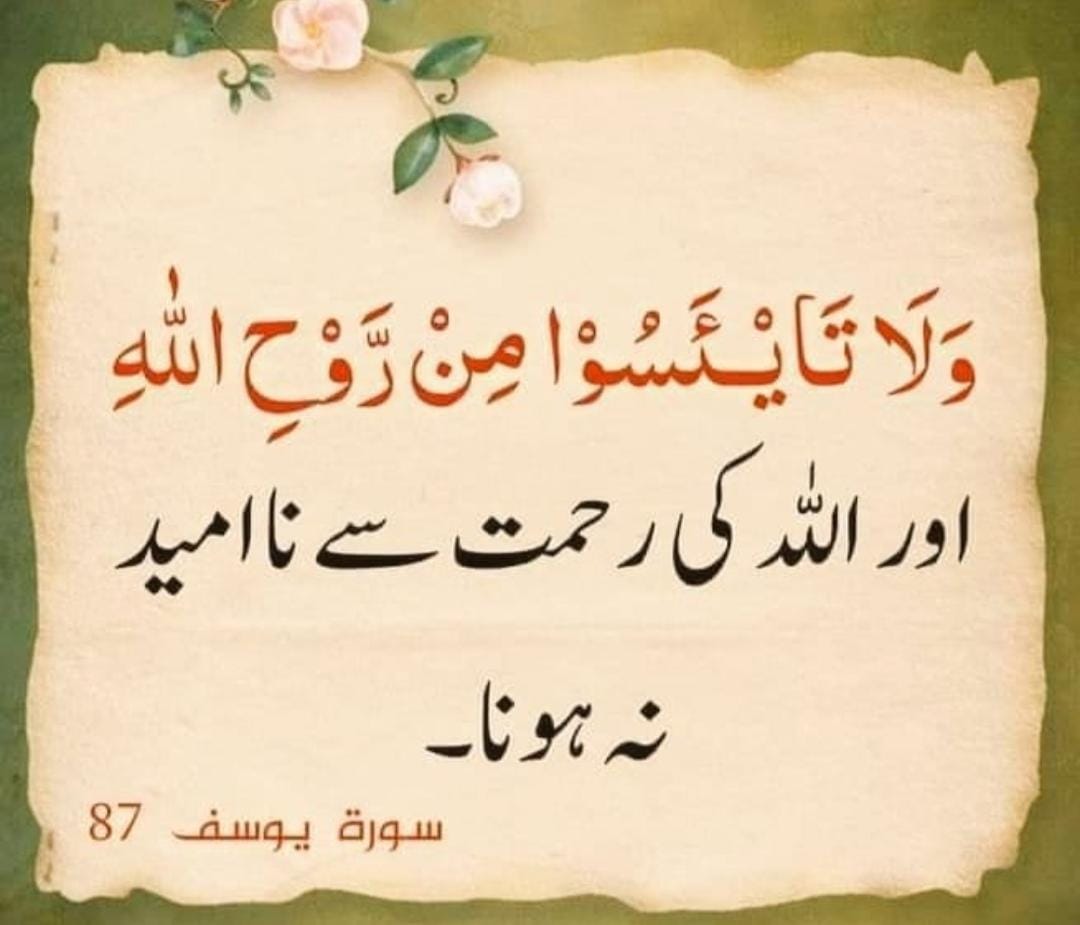 وَلَا تَايْـَٔسُوْا مِنْ رَّوْحِ اللّٰهِ
اور اللہ کی رحمت سے ناامید
نہ ہونا۔
سورة يوسف 87